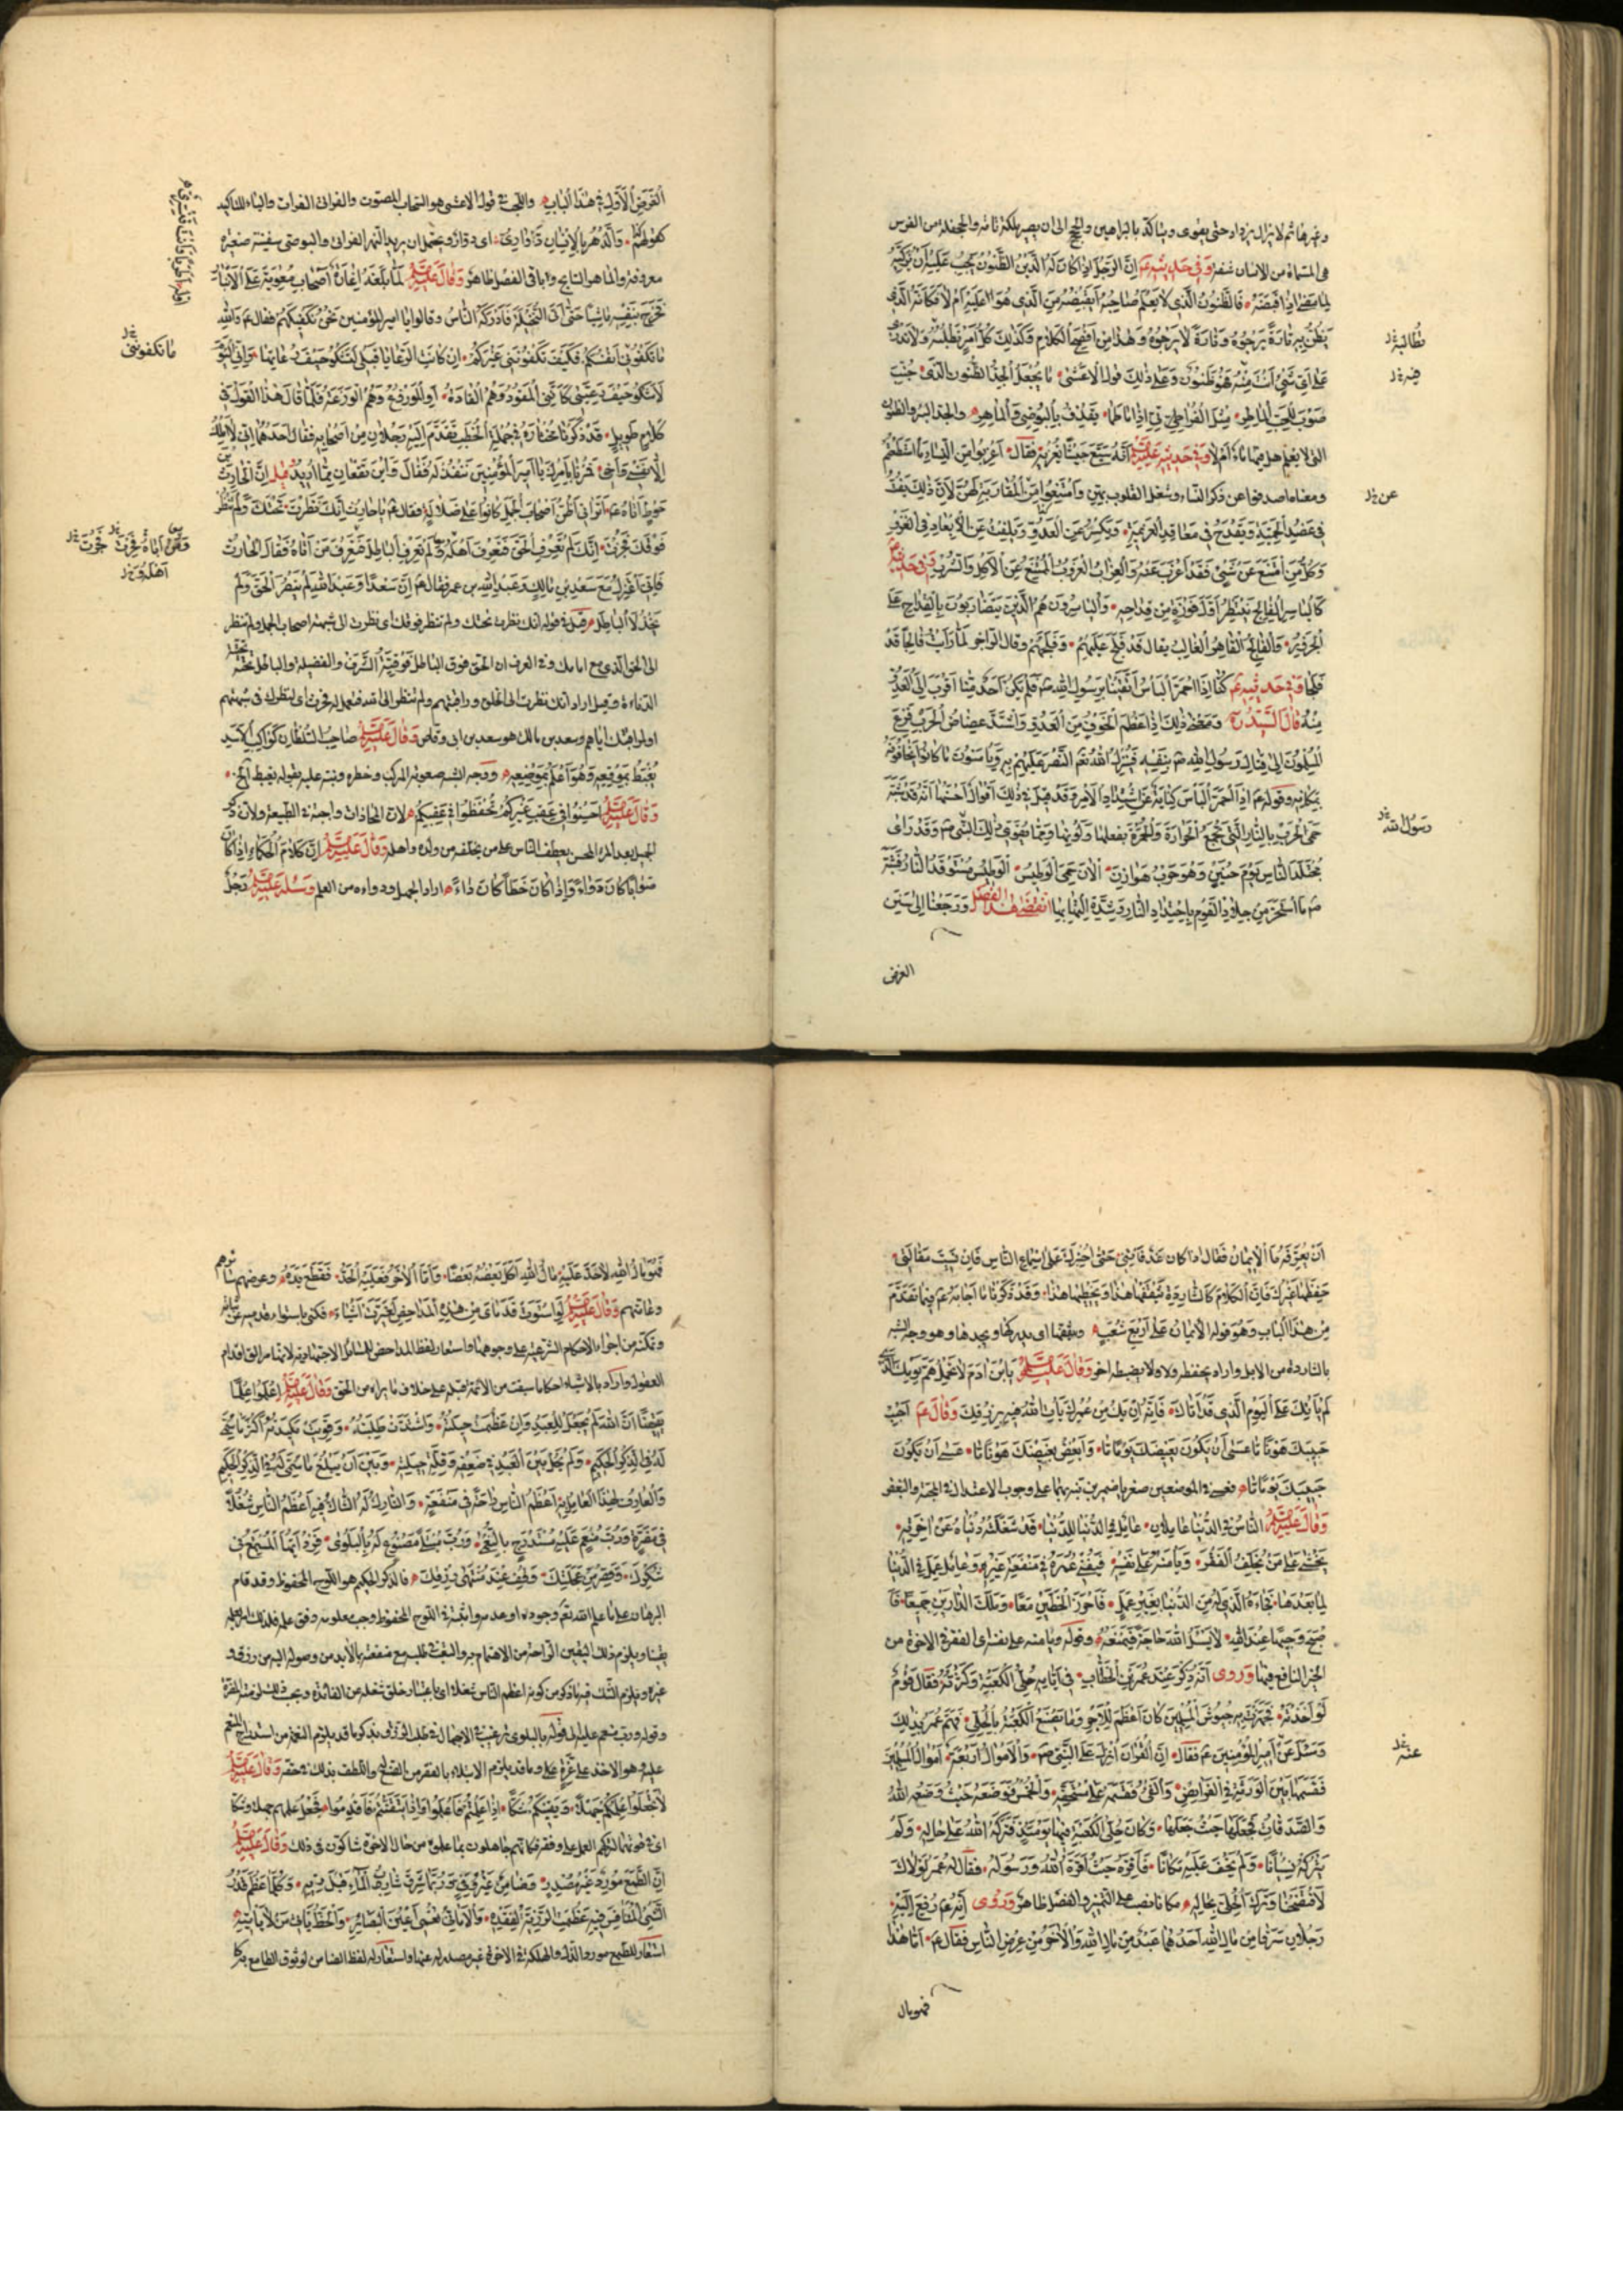 وغيرها ثم لا يزال يزداد حتى يقوى ويتاكد بالبراهين والحجج الى ان يصير ملكة تامة والجحفلة من الفرس
هي المسماة من الانسان شفة وَفي حَديثِهِ عَم إنَّ الرَّجُلَ إذا كَانَ لَهُ الدَّيْنُ الظَّنُونُ يَجِبُ عَلَيْهِ أَنْ يُزَكِّيَهُ
لِمَا مَضى إذَا قَبَضَهُ فَالظَّنُونُ الَّذي لا يَعْلَمُ صَاحِبُهُ أَيَقْبِضُهُ مِنَ الَّذِي هُوَ عَلَيْهِ أَمْ لا فَكَأَنَّهُ الَّذي
يُظَنُّ بِهِ تَارَةً يَرْجُوهُ وَتَارَةً لا يَرْجُوهُ وَهٰذَا مِنْ أَفْصَحِ الْكَلامِ وَكَذٰلِكَ كُلُّ أَمْرٍ تَطْلُبُهُ وَلا تَدْري
عَلى أَيِّ شَيْءٍ أَنْتَ مِنْهُ فَهُوَ ظَنُونٌ وَعَلى ذٰلِكَ قَولُ الأعْشى مَا يُجْعَلُ الْجُدُّ الظَّنُونُ الَّذي جُنِّبَ
صَوْبَ اللَّجِبِ الْمَاطِرِ مِثْلَ الْفُرَاتِيِّ إذَا مَا طَمَا يَقْذِفُ بِالْبُوصِيِّ وَالْمَاهِرِ والجد البئر والظنون
التي لا يعلم هل فيها ماء ام لا وَفي حَديثِهِ عَلَيْهِ السَّلَمُ أَنَّهُ شَيَّعَ جَيْشًا يُغْزِيهِ فَقَالَ أعْزِبُوا عَنِ النِّسَاءِ مَا اسْتَطَعْتُمْ
ومعناه اصدفوا عن ذكر النساء وشغل القلوب بهن وَامْتَنِعُوا مِنَ الْمُقَارَبَةِ لَهُنَّ لِأَنَّ ذٰلِكَ يَفُتُّ
فِي عَضُدِ الْحَمِيَّةِ وَيَقْدَحُ فِي مَعَاقِدِ الْعَزِيمَةِ وَيَكْسِرُ عَنِ الْعَدُوِّ وَيَلْفِتُ عَنِ الْإبْعَادِ فِي الْغَزْوِ
وَكُلُّ مَنِ امْتَنَعَ عَنْ شَيْءٍ فَقَدْ أَعْزَبَ عَنْهُ وَالْعَازِبُ الْعَزُوبُ الْمُمْتَنِعُ عَنِ الْأَكْلِ وَالشُّرْبِ وَفي حَديثِهِ عَم
كَالْيَاسِرِ الْفَالِجِ يَنْتَظِرُ أَوَّلَ فَوْزَةٍ مِنْ قِدَاحِهِ وَالْيَاسِرُونَ هُمُ الَّذِينَ يَتَضَارَبُونَ بِالْقِدَاحِ عَلَى
الْجَزُورِ وَالْفَالِجُ الْقَاهِرُ الْغَالِبُ يقال قَدْ فَلَجَ عَلَيْهِمْ وَفَلَجَهُمْ وقال الراجز لَمَّا رَأَيْتُ فَالِجًا قَدْ
فَلَجَا وَفي حَديثِهِ عَم كُنَّا إذَا احْمَرَّ الْبَأْسُ اتَّقَيْنَا بِرَسُولِ اللهِ صم فَلَمْ يَكُنْ أَحَدٌ مِنَّا أَقْرَبَ إلَى الْعَدُوِّ
مِنْهُ قَالَ السَّيِّدُ ره وَمَعْنى ذٰلِكَ إذَا عَظُمَ الْخَوْفُ مِنَ الْعَدُوِّ وَاشْتَدَّ عِضَاضُ الْحَرْبِ فَزِعَ
الْمُسْلِمُونَ إلى قِتَالِ رَسُولِ اللهِ صم بِنَفْسِهِ فَيُنْزِلُ اللهُ تَعَم النَّصْرَ عَلَيْهِمْ بِهِ وَيَأْمَنُونَ مَا كَانُوا يَخَافُونَهُ
بِمَكَانِهِ وَقوله عم إذَا احْمَرَّ الْبَأْسُ كِنَايَةٌ عَنِ اشْتِدَادِ الْأَمْرِ وَقَدْ قِيلَ فِي ذٰلِكَ أَقْوَالٌ أَحْسَنُهَا أَنَّهُ شَبَّهَ
حَمْيَ الْحَرْبِ بِالنَّارِ الَّتِي تَجْمَعُ الْحَرَارَةَ وَالْحُمْرَةَ بِفِعْلِهَا وَلَوْنِهَا وَمِمَّا يُقَوِّي ذٰلِكَ قَوْلُ النَّبِيِّ صم وَقَدْ رَاى
مُجْتَلَدَ النَّاسِ يَوْمَ حُنَيْنٍ وَهُوَ حَرْبُ هَوَازِنَ الْآنَ حَمِيَ الْوَطِيسُ الْوَطِيسُ مُسْتَوْقَدُ النَّارِ فَشَبَّهَ
صم مَا اسْتَحَرَّ مِنْ جِلَادِ الْقَوْمِ بِاحْتِدَادِ النَّارِ وَشِدَّةِ الْتِهَابِهَا انْقَضى هٰذَا الْفَصْلُ وَرَجَعْنَا إلى سَنَنِ
الغرض
تطالبه
عن
رسول الله
الْغَرَضِ الْأَوَّلِ فِي هٰذَا الْبَابِ واللجب في قول الاعشى هو السحاب المصوت والفراتي الفرات والياء للتاكيد
كقولهم وَالدَّهْرُ بِالْإنْسَانِ دَوَّارِيٌّ اى دوّار ويحتمل ان يريد النهر الفراتي والبوصى سفينة صغيرة
معروفة والماهر السابح وباقى الفصل ظاهر وَقَالَ عَلَيْهِ السَّلَمُ لَمَّا بَلَغَهُ إغَارَةُ أَصْحَابِ مُعَوِيَةَ عَلَى الْأَنْبَارِ
فَخَرَجَ بِنَفْسِهِ مَاشِيًا حَتّى أَتَى النُّخَيْلَةَ فَأَدْرَكَهُ النَّاسُ وقالوا يا امير المؤمنين نَحْنُ نَكْفِيكَهُمْ فقال عم وَاللهِ
مَا تَكْفُونِّي أَنْفُسَكُمْ فَكَيْفَ تَكْفُونَنِي غَيْرَكُمْ إنْ كَانَتِ الرَّعَايَا قَبْلِي لَتَشْكُو حَيْفَ رُعَاتِهَا وَإنِّي الْيَوْمَ
لَأَشْكُو حَيْفَ رَعِيَّتِي كَأَنِّي الْمَقُودُ وَهُمُ الْقَادَةُ أوِ الْمَوْزُوعُ وَهُمُ الْوَزَعَةُ فَلَمَّا قَالَ هٰذَا الْقَوْلَ فِي
كَلَامٍ طَوِيلٍ قَدْ ذَكَرْنَا مُخْتَارَهُ فِي جُمْلَةِ الْخُطَبِ تَقَدَّمَ إلَيْهِ رَجُلَانِ مِنْ أَصْحَابِهِ فقال أحَدُهُمَا إنِّي لَا أَمْلِكُ
إلَّا نَفْسِي وَأَخِي فَمُرْنَا بِأَمْرِكَ يَا أَمِيرَ الْمُؤْمِنِينَ نَنْفُذْ لَهُ فَقَالَ وَأَيْنَ تَقَعَانِ مِمَّا أُرِيدُ وقيل إنَّ الْحَارِثَ بن
حَوْطٍ أَتَاهُ عم أَتُرَانِي أَظُنُّ أَصْحَابَ الْجَمَلِ كَانُوا عَلى ضَلَالَةٍ فقال عم يَا حَارِثُ إنَّكَ نَظَرْتَ تَحْتَكَ وَلَمْ تَنْظُرْ
فَوْقَكَ فَحُزْتَ إنَّكَ لَمْ تَعْرِفِ الْحَقَّ فَتَعْرِفَ أَهْلَهُ وَلَمْ تَعْرِفِ الْبَاطِلَ فَتَعْرِفَ مَنْ أَتَاهُ فَقَالَ الْحَارِثُ
فَإنِّي أَعْتَزِلُ مَعَ سَعْدِ بْنِ مَالِكٍ وَعَبْدِ اللهِ بن عمر فقال عم إنَّ سَعْدًا وَعَبْدَ اللهِ لَمْ يَنْصُرَا الْحَقَّ وَلَمْ
يَخْذُلَا الْبَاطِلَ قيل في قوله انك نظرت تحتك ولم تنظر فوقك اى نظرت الى شبهة اصحاب الجمل ولم تنظر
الى الحق الذى مع امامك
اولوا
وسعد بن مالك هو سعد بن ابى وقاص وَقَالَ عَلَيْهِ السَّلَمُ صَاحِبُ السُّلْطَانِ كَرَاكِبِ الْأَسَدِ
يُغْبَطُ بِمَوْقِعِهِ وَهُوَ أَعْلَمُ بِمَوْضِعِهِ ووجه الشبه صعوبة المركب وخطره ونبه عليه بقوله يغبط الخ
وَقَالَ عَلَيْهِ السَّلَمُ أَحْسِنُوا فِي عَقِبِ غَيْرِكُمْ تُحْفَظُوا فِي عَقِبِكُمْ لان المجازات واجبة في الطبيعة ولان ذكر
الجميل بعد المرء المحسن يعطف الناس على من يخلفه من ولده واهله وَقَالَ عَلَيْهِ السَّلَمُ إنَّ كَلَامَ الْحُكَمَاءِ إذَا كَانَ
صَوَابًا كَانَ دَوَاءً وَإذَا كَانَ خَطَأً كَانَ دَاءً اراد الجهل ودواءه من العلم وَسَئَلَهُ عَلَيْهِ السَّلَمُ رَجُلٌ
ما تكفوننى
أَنْ يُعَرِّفَهُ مَا الْإيمَانُ فَقَالَ إذَا كَانَ غَدٌ فَأْتِنِي حَتّى أُخْبِرَكَ عَلى أَسْمَاعِ النَّاسِ فَإنْ نَسِيتَ مَقَالَتِي
حَفِظَهَا غَيْرُكَ فَإنَّ الْكَلَامَ كَالشَّارِدَةِ يَثْقَفُهَا هٰذَا وَيُخْطِئُهَا هٰذَا وَقَدْ ذَكَرْنَا مَا أَجَابَهُ عم فِيمَا تَقَدَّمَ
مِنْ هٰذَا الْبَابِ وَهُوَ قوله الْإيمَانُ عَلى أَرْبَعِ شُعَبٍ ويثقفها اى يدركها ويجدها وهو وجه الشبه
بالشاردة من الابل واراد يحفظه ولاه لا يضبطه اخر وَقَالَ عَلَيْهِ السَّلَمُ يَا بْنَ آدَمَ لَا تَحْمِلْ هَمَّ يَوْمِكَ الَّذِي
لَمْ يَأْتِكَ عَلَى الْيَوْمِ الَّذِي قَدْ أَتَاكَ فَإنَّهُ إنْ يَكُ مِنْ عُمُرِكَ يَأْتِ اللهُ فِيهِ بِرِزْقِكَ وَقَالَ عم أَحْبِبْ
حَبِيبَكَ هَوْنًا مَا عَسى أَنْ يَكُونَ بَغِيضَكَ يَوْمًا مَا وَأَبْغِضْ بَغِيضَكَ هَوْنًا مَا عَسى أَنْ يَكُونَ
حَبِيبَكَ يَوْمًا مَا فعسى في الموضعين صغريا ضميرين نبه بهما على وجوب الاعتدال في المحبة والبغض
وَقَالَ عَلَيْهِ السَّلَمُ النَّاسُ فِي الدُّنْيَا عَامِلَانِ عَامِلٌ فِي الدُّنْيَا لِلدُّنْيَا قَدْ شَغَلَتْهُ دُنْيَاهُ عَنْ آخِرَتِهِ
يَخْشى عَلى مَنْ يُخَلِّفُ الْفَقْرَ وَيَأْمَنُهُ عَلى نَفْسِهِ فَيُفْنِي عُمُرَهُ فِي مَنْفَعَةِ غَيْرِهِ وَعَامِلٌ عَمِلَ فِي الدُّنْيَا
لِمَا بَعْدَهَا فَجَاءَهُ الَّذِي لَهُ مِنَ الدُّنْيَا بِغَيْرِ عَمَلٍ فَأَحْرَزَ الْحَظَّيْنِ مَعًا وَمَلَكَ الدَّارَيْنِ جَمِيعًا فَأَ
صْبَحَ وَجِيهًا عِنْدَ اللهِ لَا يَسْئَلُ اللهَ حَاجَةً فَيَمْنَعَهُ وقوله ويامنه على نفسه اى الفقر في الاخرة من
الخير النافع فيها وَرُوِىَ أَنَّهُ ذُكِرَ عِنْدَ عُمَرَ بْنِ الْخَطَّابِ فِي أَيَّامِهِ حُلِيُّ الْكَعْبَةِ وَكَثْرَتُهُ فَقَالَ قَوْمٌ
لَوْ أَخَذْتَهُ فَجَهَّزْتَ بِهِ جُيُوشَ الْمُسْلِمِينَ كَانَ أَعْظَمَ لِلْأَجْرِ وَمَا تَصْنَعُ الْكَعْبَةُ بِالْحُلِيِّ فَهَمَّ عُمَرُ بِذٰلِكَ
وَسَئَلَ عَنْهُ أَمِيرَ الْمُؤْمِنِينَ عم فَقَالَ إنَّ الْقُرْانَ أُنْزِلَ عَلَى النَّبِيِّ صم وَالْأَمْوَالُ أَرْبَعَةٌ أَمْوَالُ الْمُسْلِمِينَ
فَقَسَمَهَا بَيْنَ الْوَرَثَةِ فِي الْفَرَائِضِ وَالْفَيْءُ فَقَسَمَهُ عَلى مُسْتَحِقِّهِ وَالْخُمْسُ فَوَضَعَهُ حَيْثُ وَضَعَهُ اللهُ
وَالصَّدَقَاتُ فَجَعَلَهَا حَيْثُ جَعَلَهَا وَكَانَ حُلِيُّ الْكَعْبَةِ فِيهَا يَوْمَئِذٍ فَتَرَكَهُ اللهُ عَلى حَالِهِ وَلَمْ
يَتْرُكْهُ نِسْيَانًا وَلَمْ يَخْفَ عَلَيْهِ مَكَانًا فَأَقِرَّهُ حَيْثُ أَقَرَّهُ اللهُ وَرَسُولُهُ فَقَالَ لَهُ عُمَرُ لَوْلَاكَ
لَافْتَضَحْنَا وَتَرَكَ الْحُلِيَّ بِحَالِهِ مكانا نصب على التمييز والفصل ظاهر وَرُوِىَ أَنَّهُ عم رُفِعَ إلَيْهِ
رَجُلَانِ سَرَقَا مِنْ مَالِ اللهِ أَحَدُهُمَا عَبْدٌ مِنْ مَالِ اللهِ وَالْآخَرُ مِنْ عُرْضِ النَّاسِ فَقَالَ عم أَمَّا هٰذَا
فهو مال
عنه
فَهُوَ مَالُ اللهِ لَا حَدَّ عَلَيْهِ مَالُ اللهِ أَكَلَ بَعْضُهُ بَعْضًا وَأَمَّا الْآخَرُ فَعَلَيْهِ الْحَدُّ فَقَطَعَ يَدَهُ وعرضهم
وعامتهم وَقَالَ عَلَيْهِ السَّلَمُ لَوِ اسْتَوَتْ قَدَمَايَ مِنْ هٰذِهِ الْمَدَاحِضِ لَغَيَّرْتُ أَشْيَاءَ فكنى باستواء قدميه عن ثباته
وتمكنه من اجراء الاحكام الشرعية على وجوهها واستعار لفظ المداحض للمسائل الاجتهادية لانها مزالق اقدام
العقول واراد بالاشياء احكاما سبقت من الائمة قبله على خلاف ما يراه من الحق وَقَالَ عَلَيْهِ السَّلَمُ اعْلَمُوا عِلْمًا
يَقِينًا أَنَّ اللهَ لَمْ يَجْعَلْ لِلْعَبْدِ وَإنْ عَظُمَتْ حِيلَتُهُ وَاشْتَدَّتْ طِلْبَتُهُ وَقَوِيَتْ مَكِيدَتُهُ أَكْثَرَ مَا سُمِّيَ
لَهُ فِي الذِّكْرِ الْحَكِيمِ وَلَمْ يَحُلْ بَيْنَ الْعَبْدِ فِي ضَعْفِهِ وَقِلَّةِ حِيلَتِهِ وَبَيْنَ أَنْ يَبْلُغَ مَا سُمِّيَ لَهُ فِي الذِّكْرِ الْحَكِيمِ
وَالْعَارِفُ لِهٰذَا الْعَامِلُ بِهِ أَعْظَمُ النَّاسِ رَاحَةً فِي مَنْفَعَةٍ وَالتَّارِكُ لَهُ الشَّاكُّ فِيهِ أَعْظَمُ النَّاسِ شُغُلًا
فِي مَضَرَّةٍ وَرُبَّ مُنْعَمٍ عَلَيْهِ مُسْتَدْرَجٌ بِالنُّعْمى وَرُبَّ مُبْتَلًى مَصْنُوعٌ لَهُ بِالْبَلْوى فَزِدْ أَيُّهَا الْمُسْتَمِعُ فِي
شُكْرِكَ وَقَصِّرْ مِنْ عَجَلَتِكَ وَقِفْ عِنْدَ مُنْتَهى رِزْقِكَ فالذكر الحكيم هو اللوح المحفوظ وقد قام
البرهان على ان ما علم الله تعم وجوده او عدمه واثبته في اللوح المحفوظ وجب
يقينا ويلزم ذلك اليقين الراحة من الاهتمام به والتعب في طلبه مع منفعته بالابد من وصوله اليه من رزق و
غيره ويلزم الشك فيه ما ذكر من كونه اعظم الناس شغلا
وقوله ورب منعم عليه الى قوله بالبلوى ترغيب في الاجمال في طلب الرزق بذكر ما قد يلزم النعمة من استدراج المنعم
عليه وهو الاخذ على غرة وَقَالَ عَلَيْهِ السَّلَمُ
لَا تَجْعَلُوا عِلْمَكُمْ جَهْلًا وَيَقِينَكُمْ شَكًّا إذَا عَلِمْتُمْ فَاعْمَلُوا وَإذَا تَيَقَّنْتُمْ فَأَقْدِمُوا فجعل علمهم جهلا وشكا
وَقَالَ عَلَيْهِ السَّلَمُ
إنَّ الطَّمَعَ مُورِدٌ غَيْرُ مُصْدِرٍ وَضَامِنٌ غَيْرُ وَفِيٍّ وَرُبَّمَا شَرِقَ شَارِبُ الْمَاءِ قَبْلَ رِيِّهِ وَكُلَّمَا عَظُمَ قَدْرُ
الشَّيْءِ الْمُتَنَافَسِ فِيهِ عَظُمَتِ الرَّزِيَّةُ لِفَقْدِهِ وَالْأَمَانِيُّ تُعْمِي أَعْيُنَ الْبَصَائِرِ وَالْحَظُّ يَأْتِي مَنْ لَا يَأْتِيهِ
استعار للطمع موردا